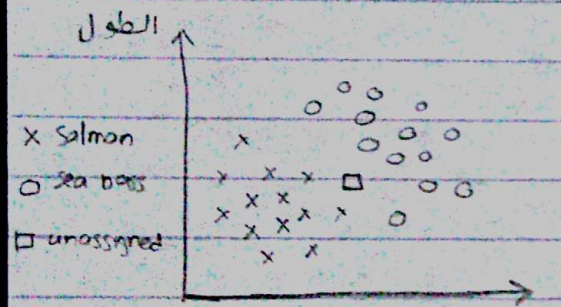 الطول
x salmon
o sea bass
□ unassigned